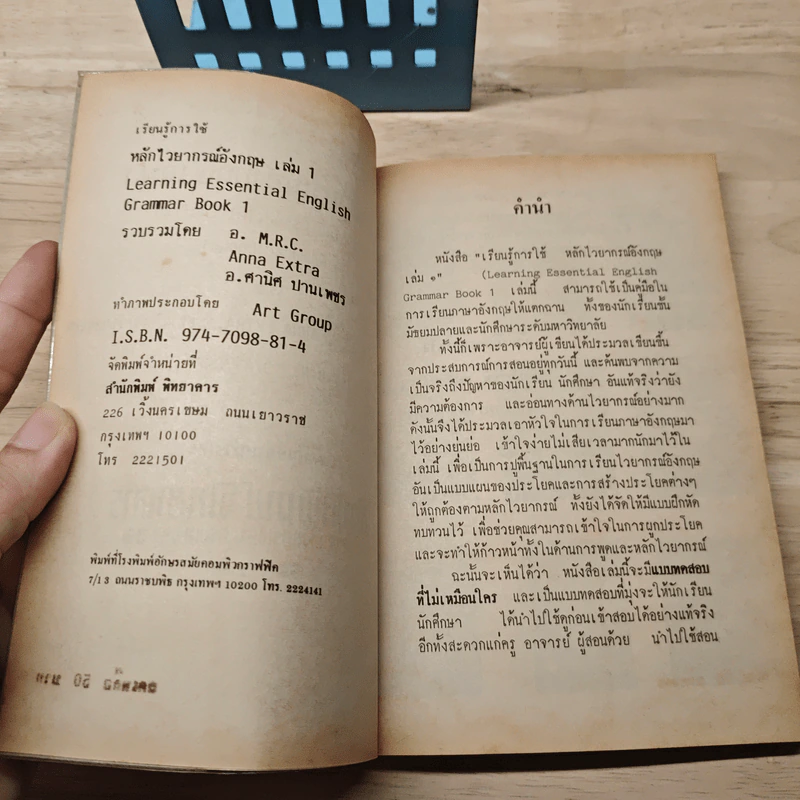 เรียนรู้การใช้
หลักไวยากรณ์อังกฤษ เล่ม 1
Learning Essential English
Grammar Book 1
รวบรวมโดย อ. M.R.C.
Anna Extra
อ.ศานิศ ปานเพชร
ทำภาพประกอบโดย Art Group
I.S.B.N. 974-7098-81-4
จัดพิมพ์จำหน่ายที่
สำนักพิมพ์ พิทยาคาร
226 เวิ้งนครเขษม ถนนเยาวราช
กรุงเทพฯ 10100
โทร 2221501
พิมพ์ที่โรงพิมพ์อักษรสมัยคอมพิวกราฟฟิค
7/13 ถนนราชบพิธ กรุงเทพฯ 10200 โทร. 2224141
คำนำ
หนังสือ "เรียนรู้การใช้ หลักไวยากรณ์อังกฤษ
เล่ม ๑" (Learning Essential English
Grammar Book 1 เล่มนี้ สามารถใช้เป็นคู่มือใน
การเรียนภาษาอังกฤษให้แตกฉาน ทั้งของนักเรียนชั้น
มัธยมปลายและนักศึกษาระดับมหาวิทยาลัย
ทั้งนี้ก็เพราะอาจารย์ผู้เขียนได้ประมวลเขียนขึ้น
จากประสบการณ์การสอนอยู่ทุกวันนี้ และค้นพบจากความ
เป็นจริงถึงปัญหาของนักเรียน นักศึกษา อันแท้จริงว่ายัง
มีความต้องการ และอ่อนทางด้านไวยากรณ์อย่างมาก
ดังนั้นจึงได้ประมวลเอาหัวใจในการเรียนภาษาอังกฤษมา
ไว้อย่างยุ่นย่อ เข้าใจง่ายไม่เสียเวลามากนักมาไว้ใน
เล่มนี้ เพื่อเป็นการปูพื้นฐานในการเรียนไวยากรณ์อังกฤษ
อันเป็นแบบแผนของประโยคและการสร้างประโยคต่างๆ
ให้ถูกต้องตามหลักไวยากรณ์ ทั้งยังได้จัดให้มีแบบฝึกหัด
ทบทวนไว้ เพื่อช่วยคุณสามารถเข้าใจในการผูกประโยค
และจะทำให้ก้าวหน้าทั้งในด้านการพูดและหลักไวยากรณ์
ฉะนั้นจะเห็นได้ว่า หนังสือเล่มนี้จะมีแบบทดสอบ
ที่ไม่เหมือนใคร และเป็นแบบทดสอบที่มุ่งจะให้นักเรียน
นักศึกษา ได้นำไปใช้ดูก่อนเข้าสอบได้อย่างแท้จริง
อีกทั้งสะดวกแก่ครู อาจารย์ ผู้สอนด้วย นำไปใช้สอน